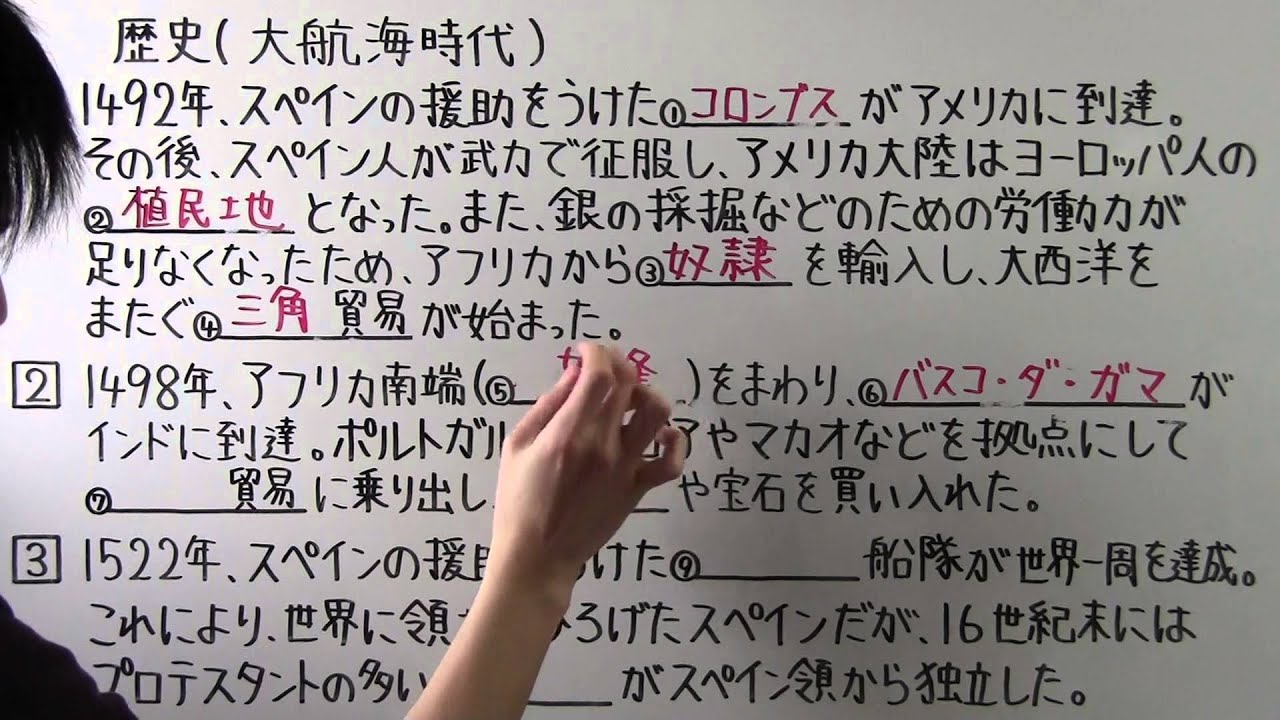 歴史(大航海時代)
1492年、スペインの援助をうけた①コロンブスがアメリカに到達。
その後、スペイン人が武力で征服し、アメリカ大陸はヨーロッパ人の
②植民地となった。また、銀の採掘などのための労働力が
足りなくなったため、アフリカから③奴隷を輸入し、大西洋を
またぐ④三角貿易が始まった。
2 1498年、アフリカ南端(⑤ )をまわり、⑥バスコ・ダ・ガマが
インドに到達。ポルトガル アやマカオなどを拠点にして
⑦ 貿易に乗り出し、 や宝石を買い入れた。
3 1522年、スペインの援助 うけた⑨ 船隊が世界一周を達成。
これにより、世界に領 ひろげたスペインだが、16世紀末には
プロテスタントの多い がスペイン領から独立した。